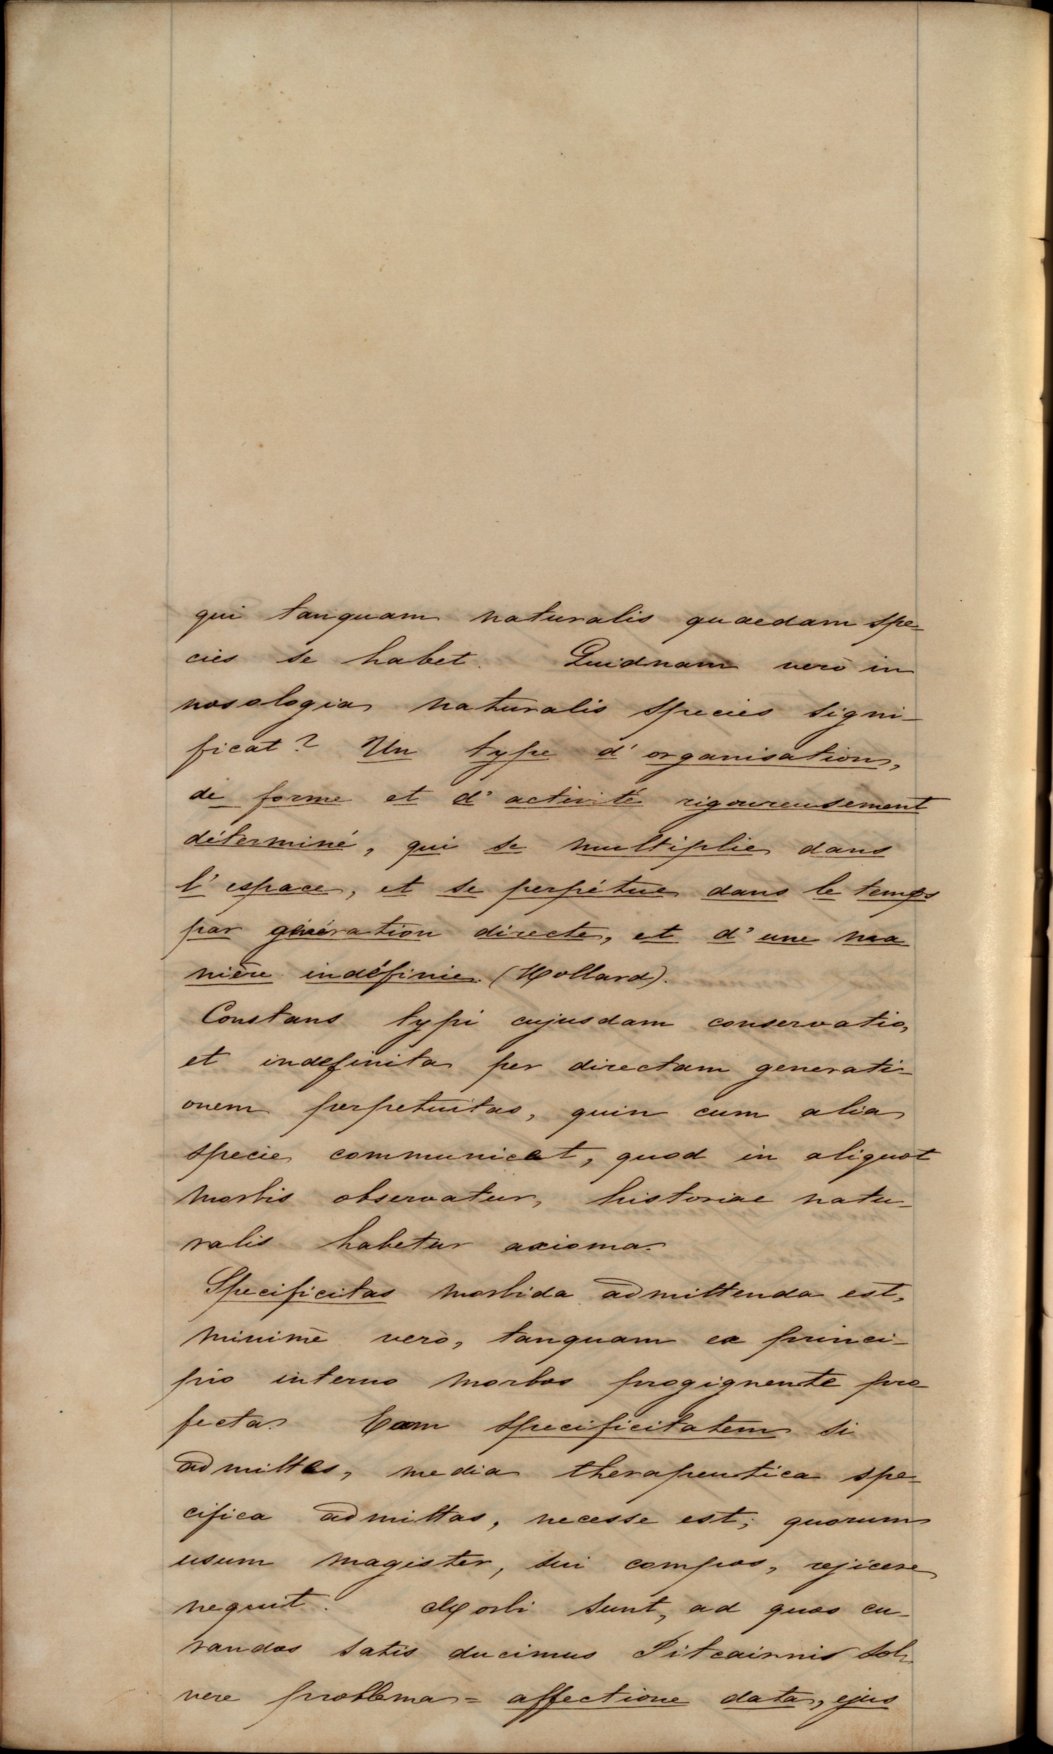 qui tanquam naturalis quaedam spe-
cies se habet. Quidnam verò in
nosologia naturalis species signi-
ficat? Un type d'organisation,
de forme et d'activité rigoureusement
déterminé, qui se multiplie dans
l'espace, et se perpétue dans le temps
par génération directe, et d'une ma
nière indéfinie (Hollard).
Constans typi cujusdam conservatio,
et indefinita per directam generati-
onem perpetuitas, quin cum alia
specie communicet, quod in aliquot
morbis observatur, historiae natu-
ralis habetur axioma.
Specificitas morbida admittenda est,
minimè verò, tanquam ex princi-
pio interno morbos progignente pro
fecta. Eam specificitatem si
admittas, media therapeutica spe-
cifica admittas, necesse est; quorum
usum magister, sui compos, rejicere
nequit. Morbi sunt, ad quos cu-
randos satis ducimus Pitcairnis sol-
vere problema = affectione data, ejus